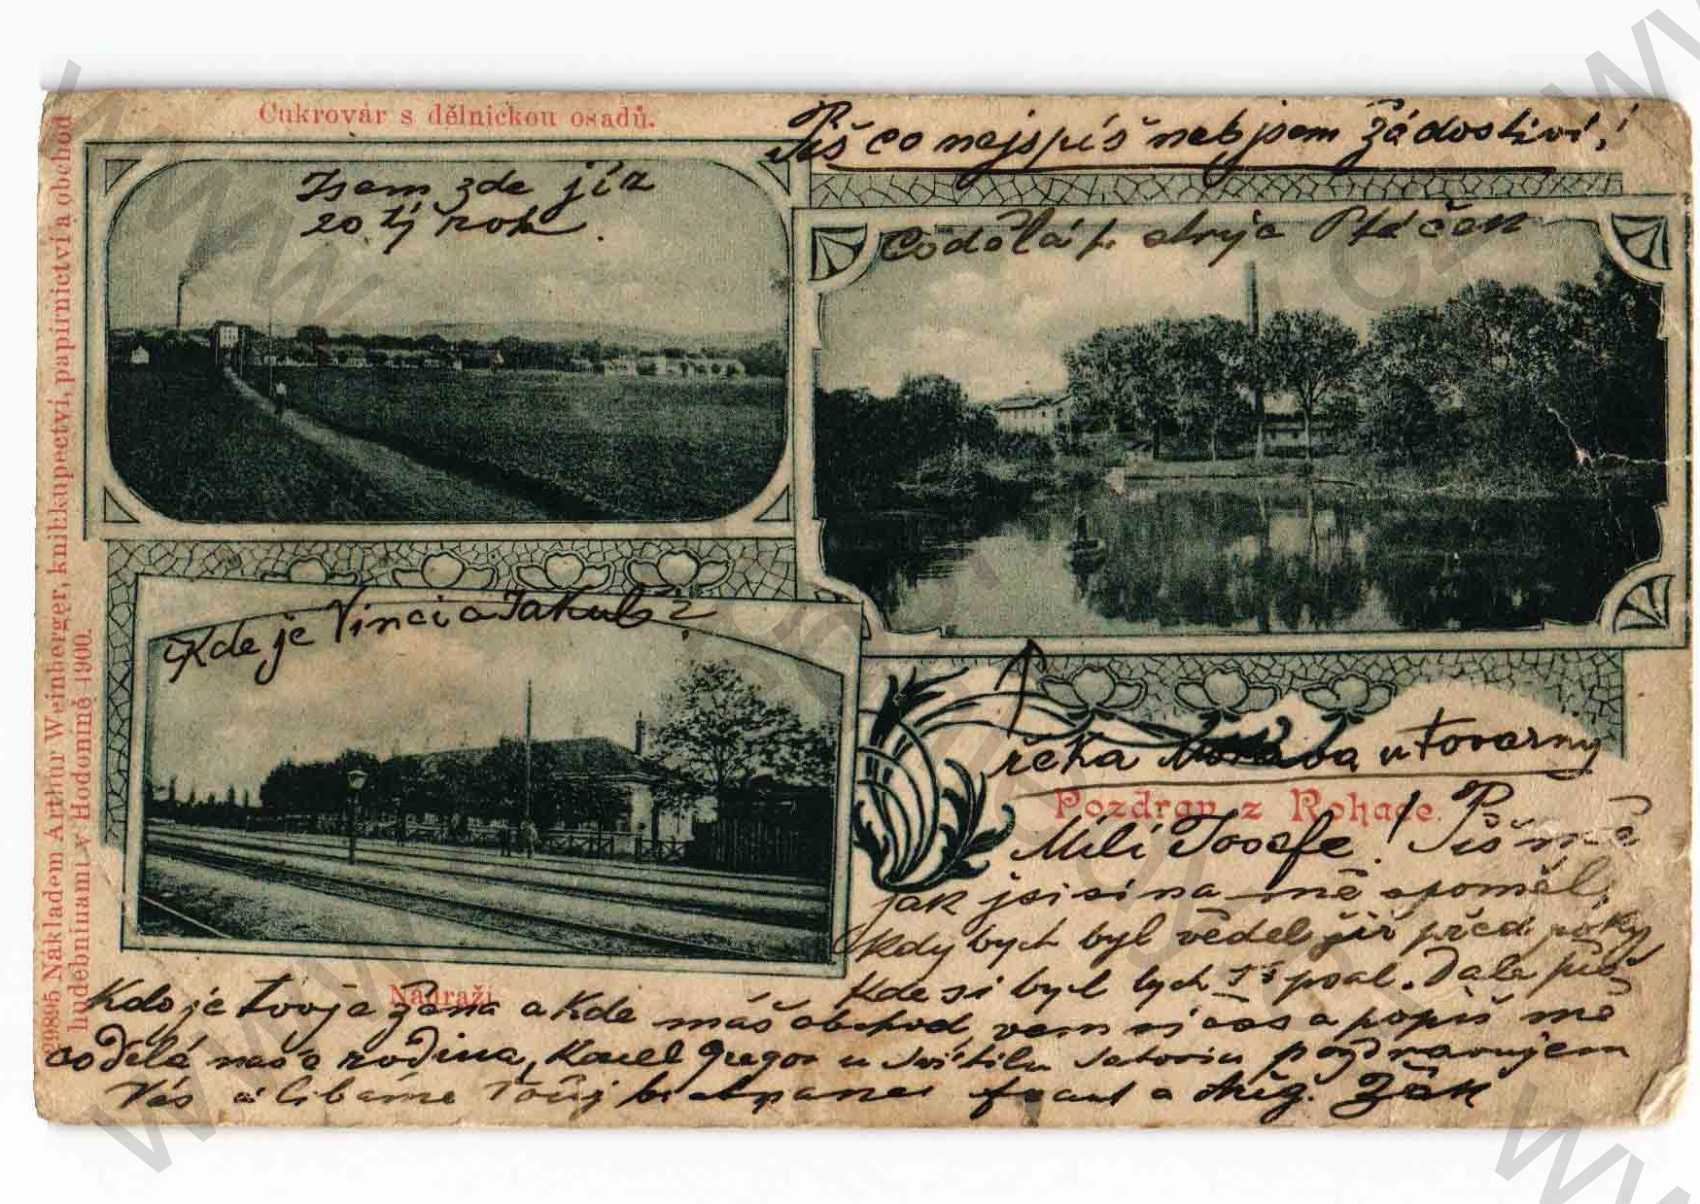 Cukrovár s dělnickou osadů.
Piš co nejspíš neb jsem žádostiví!
Jsem zde již
20 tý rok.
Co dělá p. strýc Ptáček
Kde je Vinci a Jakub?
řeka Morava u továrny
Pozdrav z Rohatce.
Milí Josefe! Piš mě
jak jsi si na mě spoměl,
Kdy bych byl věděl již před roky
kde si byl bych Ti psal. Dále piš
Nádraží.
Kdo je tvoje žena a kde máš obchod, vem si čas a popiš mě
co dělá naše rodina, Karel Gregor u pozdravujem
Vás a líbáme Tvůj a Aug. Žák
29895 Nákladem Arthur Weinberger, knihkupectví, papírnictví a obchod
hudebninami v Hodoníně 1900.